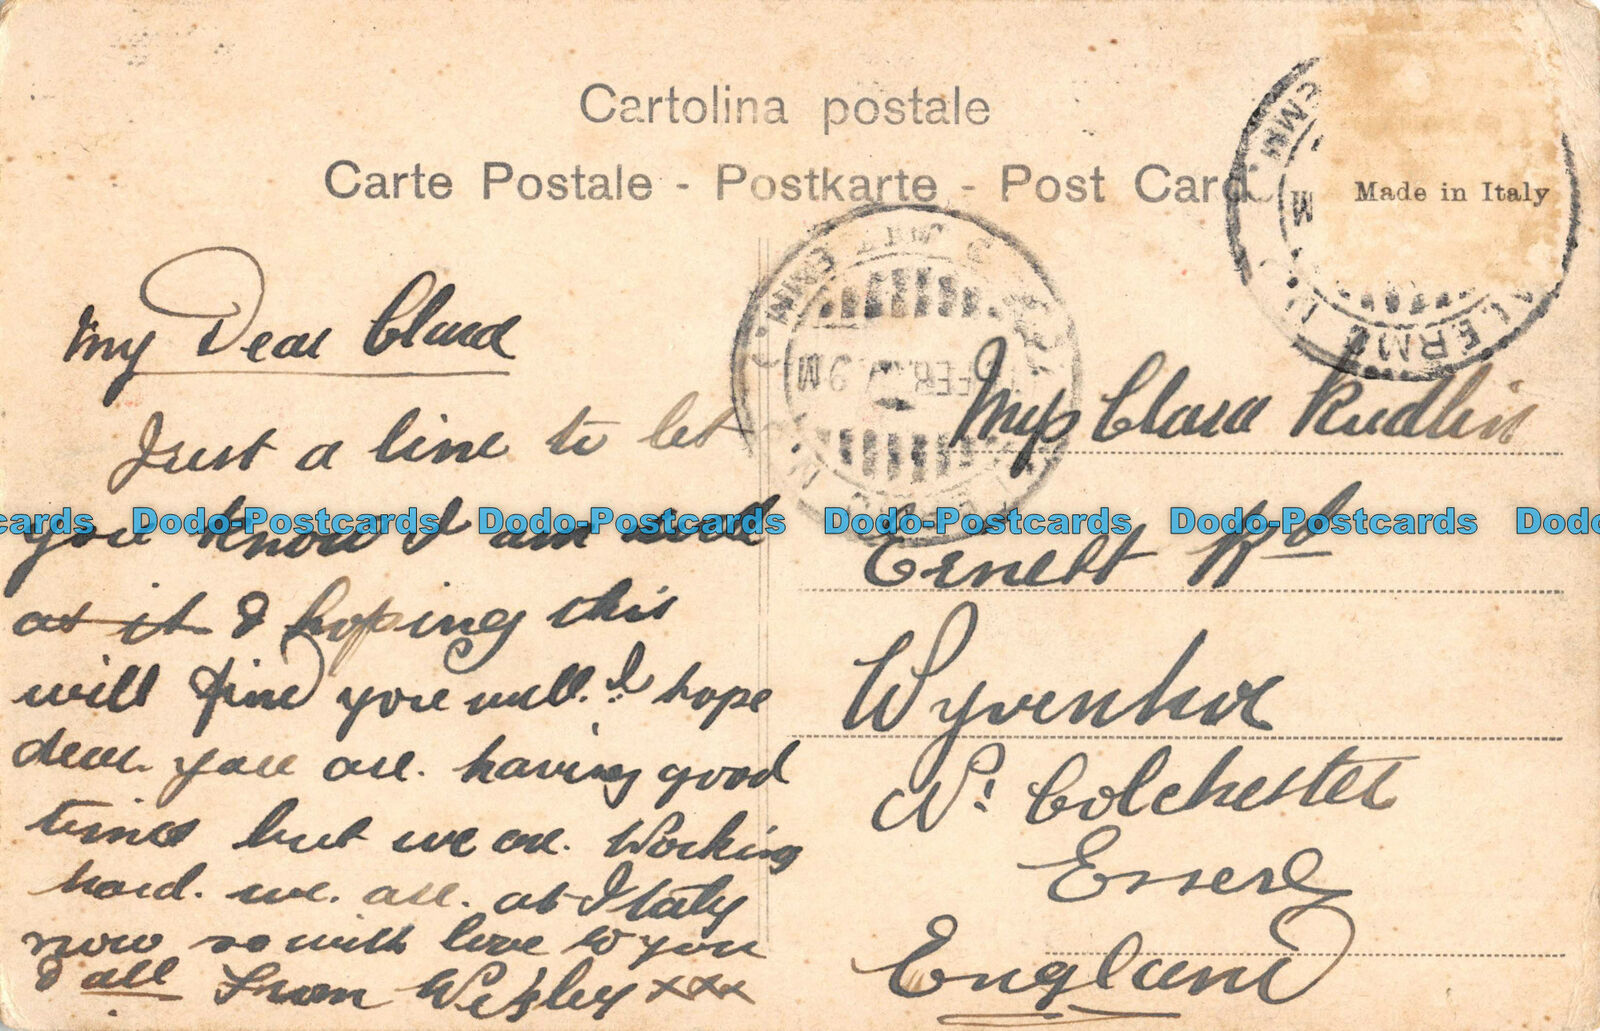 Cartolina postale
Carte Postale - Postkarte - Post Card
Made in Italy
My Dear Clara
Just a line to let
you know I am well
as it & hoping this
will find you well. I hope
dear you are. having good
times but we are. Working
hard. we. are. at Italy
now so with love to you
& all From Wesley xxx
Miss Clara Rudlin
Ernest Rd
Wyvenhoe
Nr Colchester
Essex
England
FEB. 9 M
PALERMO
Dodo-Postcards Dodo-Postcards Dodo-Postcards Dodo-Postcards